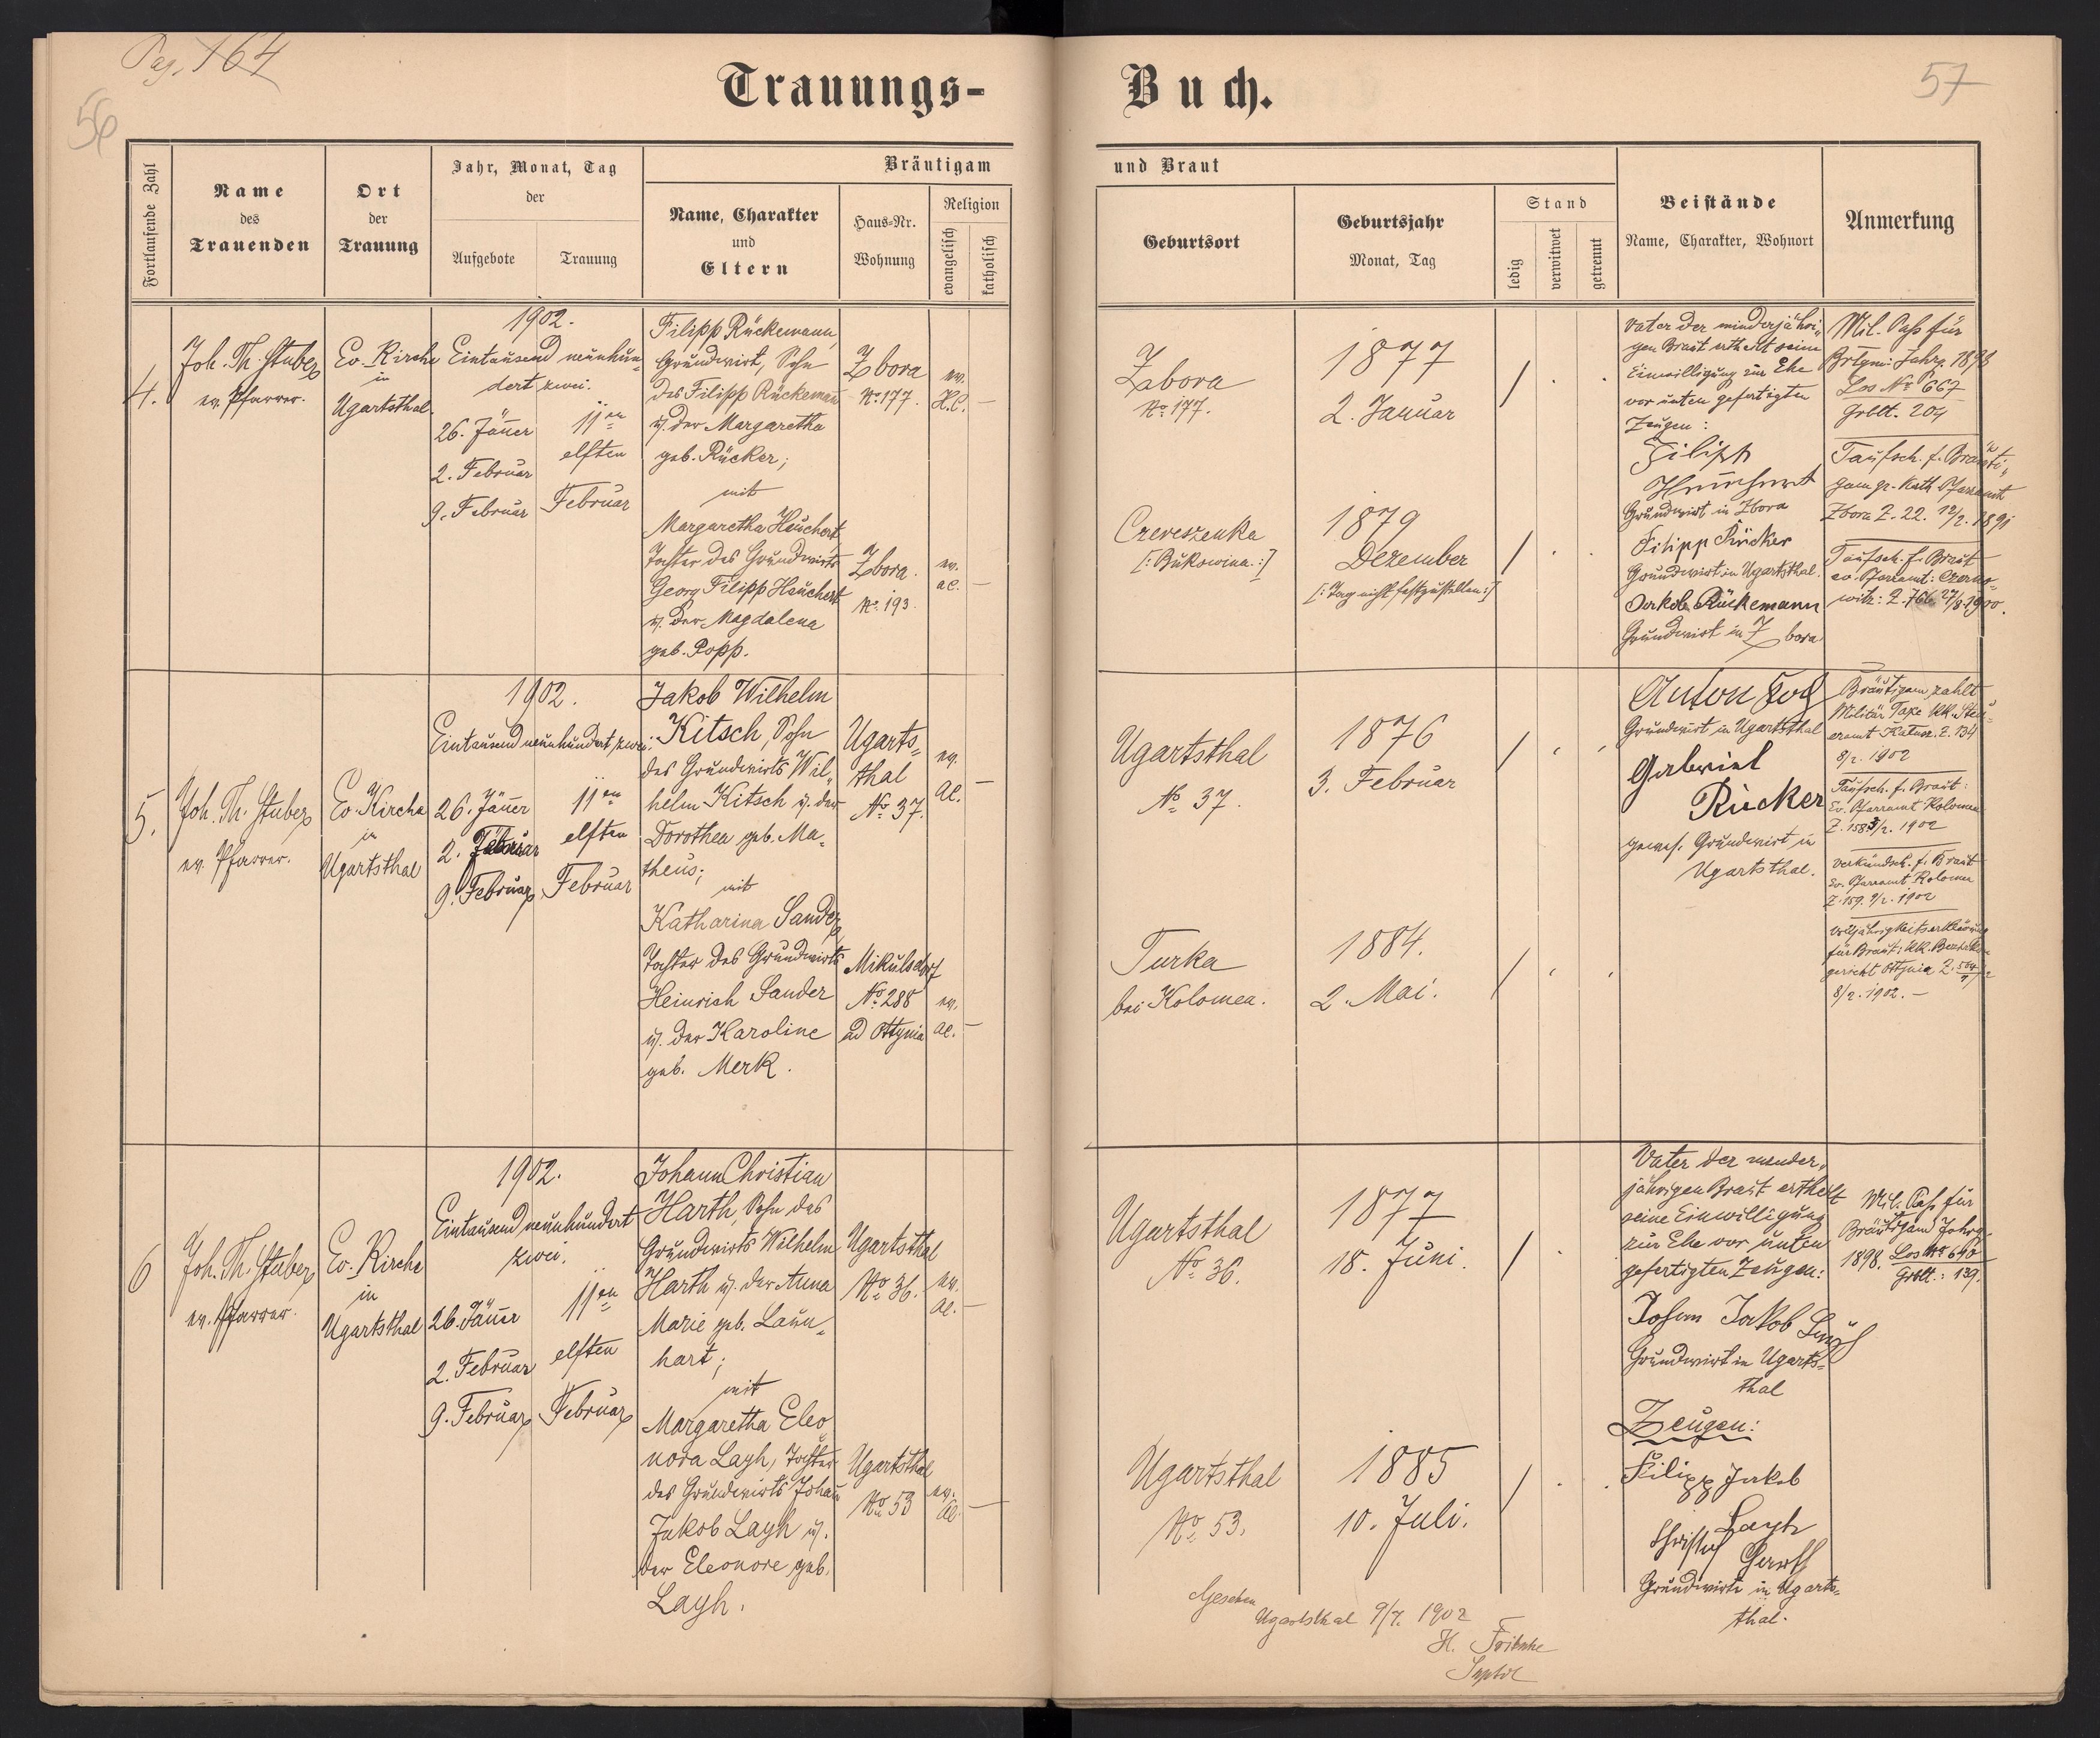 Pag. 164
56
57
Trauungs-Buch.
Fortlaufende Zahl
Name
des
Trauenden
Ort
der
Trauung
Jahr, Monat, Tag
der
Aufgebote
Trauung
Bräutigam und Braut
Name, Charakter
und
Eltern
Haus-Nr.
Wohnung
Religion
evangelisch
katholisch
Geburtsort
Geburtsjahr
Monat, Tag
Stand
ledig
verwitwet
getrennt
Beistände
Name, Charakter, Wohnort
Anmerkung
4.
Joh. Th. Stuber
ev. Pfarrer.
Ev. Kirche
in
Ugartsthal.
1902.
Eintausend neunhun-
dert zwei.
26. Jäner
2. Februar
9. Februar
11en
elften
Februar
Filipp Rückemann,
Grundwirt, Sohn
des Filipp Rückemann
u. der Margaretha
geb. Rücker;
mit
Margaretha Heuchert
Tochter des Grundwirts
Georg Filipp Heuchert
u. der Magdalena
geb. Popp.
Zbora
No. 177.
Zbora.
No. 193.
ev.
H.C. —
ev.
AC. —
Zbora
No. 177.
Czereszenka
[: Bukowina :]
1877
2. Januar
1879
Dezember
[: Tag nicht festzustellen :]
Vater der minderjähri-
gen Braut ertheilt seine
Einwilligung zur Ehe
vor unten gefertigten
Zeugen:
Filipp
Heuchert
Grundwirt in Zbora
Filipp Rücker
Grundwirt in Ugartsthal.
Jakob Rückemann
Grundwirt in Zbora
Mil. Paß für
Brtgm: Jahrg. 1898
Los No 667
Grblt. 204
Taufsch. f. Bräuti-
gam gr. Kath. Pfarramt
Zbora Z. 22. 12/2. 1891
Taufsch. f. Braut
ev. Pfarramt: Czerno-
witz: Z. 766. 27/8. 1900.
5.
Joh. Th. Stuber
ev. Pfarrer.
Ev. Kirche
in
Ugartsthal
1902.
Eintausend neunhundert zwei.
26. Jäner
2. Februar
9. Februar
11en
elften
Februar
Jakob Wilhelm
Kitsch, Sohn
des Grundwirts Wil-
helm Kitsch u. der
Dorothea geb. Ma-
theus;
mit
Katharina Sander
Tochter des Grundwirts
Heinrich Sander
u. der Karoline
geb. Merk.
Ugarts-
thal
No. 37.
Mikulsdorf
No. 288
ad Ottynia
ev.
AC. —
ev.
AC. —
Ugartsthal
No. 37.
Turka
bei Kolomea.
1876
3. Februar
1884.
2. Mai.
Anton
Grundwirt in Ugartsthal
Gabriel
Rücker
gewes. Grundwirt in
Ugartsthal.
Bräutigam zahlt
Militär Taxe kk. Steu-
eramt Kalusz. Z. 134
8/2. 1902
Taufsch. f. Braut:
Ev. Pfarramt Kolomea
Z. 158 /2. 1902
Verkündsch. f. Braut
Ev. Pfarramt Kolomea
Z. 159. 9/2. 1902
Volljährigkeitserklärung
für Braut: kk. Bezirks-
gericht Ottynia Z.
8/2. 1902. —
6
Joh. Th. Stuber
ev. Pfarrer.
Ev. Kirche
in
Ugartsthal
1902.
Eintausend neunhundert
zwei.
26. Jäner
2. Februar
9. Februar
11en
elften
Februar
Johann Christian
Harth, Sohn des
Grundwirts Wilhelm
Harth u. der Anna
Marie geb. Laun-
hart;
mit
Margaretha Eleo-
nora Layh, Tochter
des Grundwirts Johann
Jakob Layh u.
der Eleonore geb.
Layh.
Ugartsthal
No. 36.
Ugartsthal
No 53
ev.
AC. —
ev.
AC. —
Ugartsthal
No. 36.
Ugartsthal
No. 53.
1877
18. Juni.
1885
10. Juli.
Vater der minder-
jährigen Braut ertheilt
seine Einwilligung
zur Ehe vor unten
gefertigten Zeugen:
Johann Jakob Layh
Grundwirt in Ugarts-
thal
Zeugen:
Filipp Jakob
Layh
Christof Harth
Grundwirte in Ugarts-
thal.
Mil. Paß für
Bräutigam Jahrg.
1898. Los No 640
Grblt.: 139.
Gesehen
Ugartsthal 9/7. 1902